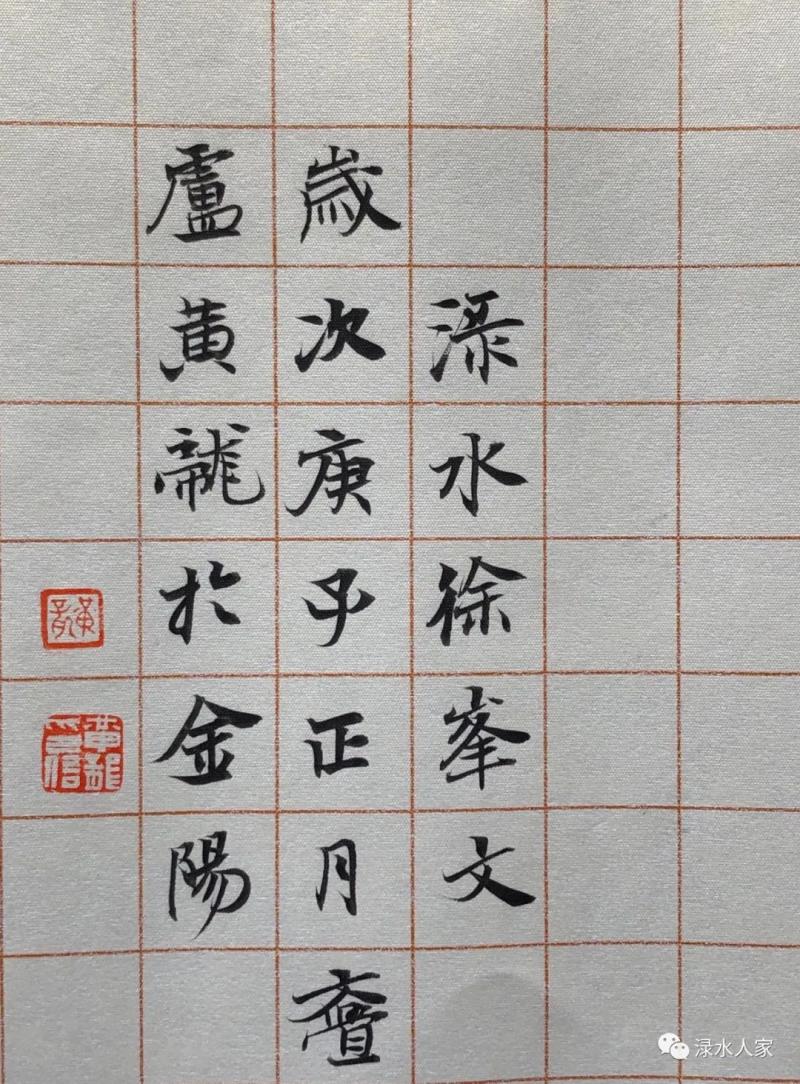 渌水徐峯文
歲次庚子正月
盧黃龍於金陽
黃龍
黃龍印信
渌水人家